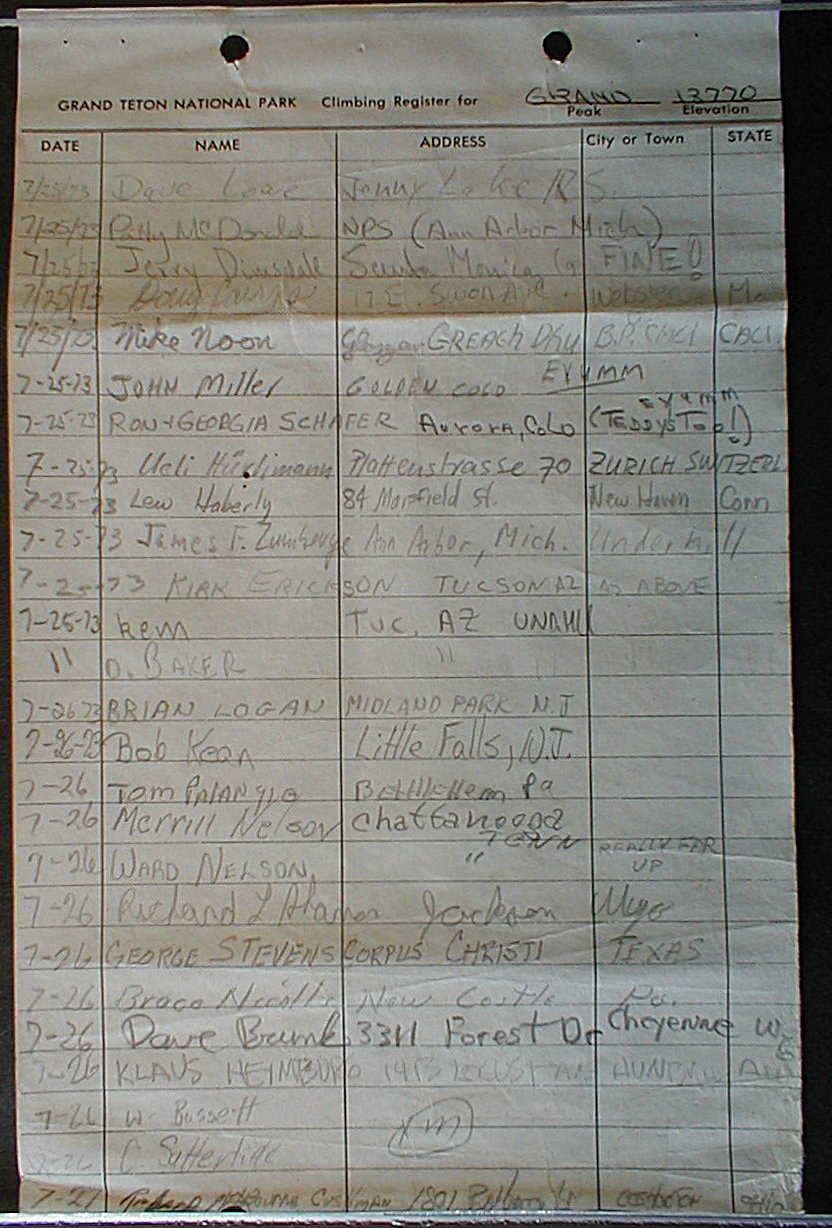 GRAND TETON NATIONAL PARK Climbing Register for GRAND 13770
Peak Elevation
DATE NAME ADDRESS City or Town STATE
7/25/73 Dave Lowe Jenny Lake R S.
7/25/73 Patty McDonald NPS (Ann Arbor Mich)
7/25/73 Jerry Dinsdale Santa Monica Ca FINE!
7/25/73 Doug 17 E. Ave. Webster Mo
7/25/73 Mike Noon GREAGH DHU B.P.
7-25-73 JOHN Miller GOLDEN COLO EYUMM
7-25-73 RON & GEORGIA SCHAFER AURORA, COLO (TEDDYS TOO!) EYUMM
7-25-73 Ueli Hürlimann Plattenstrasse 70 ZURICH SWITZERL.
7-25-73 Lew Haberly 84 St. New Haven Conn
7-25-73 James F. Zumberge Ann Arbor, Mich. Underhill
7-25-73 KIRK ERICKSON TUCSON AZ AS ABOVE
7-25-73 kem TUC, AZ
" D. BAKER " " "
7-26 73 BRIAN LOGAN MIDLAND PARK N.J
7-26-73 Bob Kean Little Falls, N.J.
7-26 Tom PALANGIO Bethlehem Pa
7-26 Merrill Nelson Chattanooga TENN
7-26 WARD NELSON " REALLY FAR UP
7-26 Richard L Jackson Wyo
7-26 GEORGE STEVENS CORPUS CHRISTI TEXAS
7-26 Bruce Nicolls New Castle Pa.
7-26 Dave Brunk 3311 Forest Dr Cheyenne Wy
7-26 KLAUS HEIMBURG 1413 LOCUST
7-26 W. Bussett
7-26 C
7-27 CUSHMAN 1801